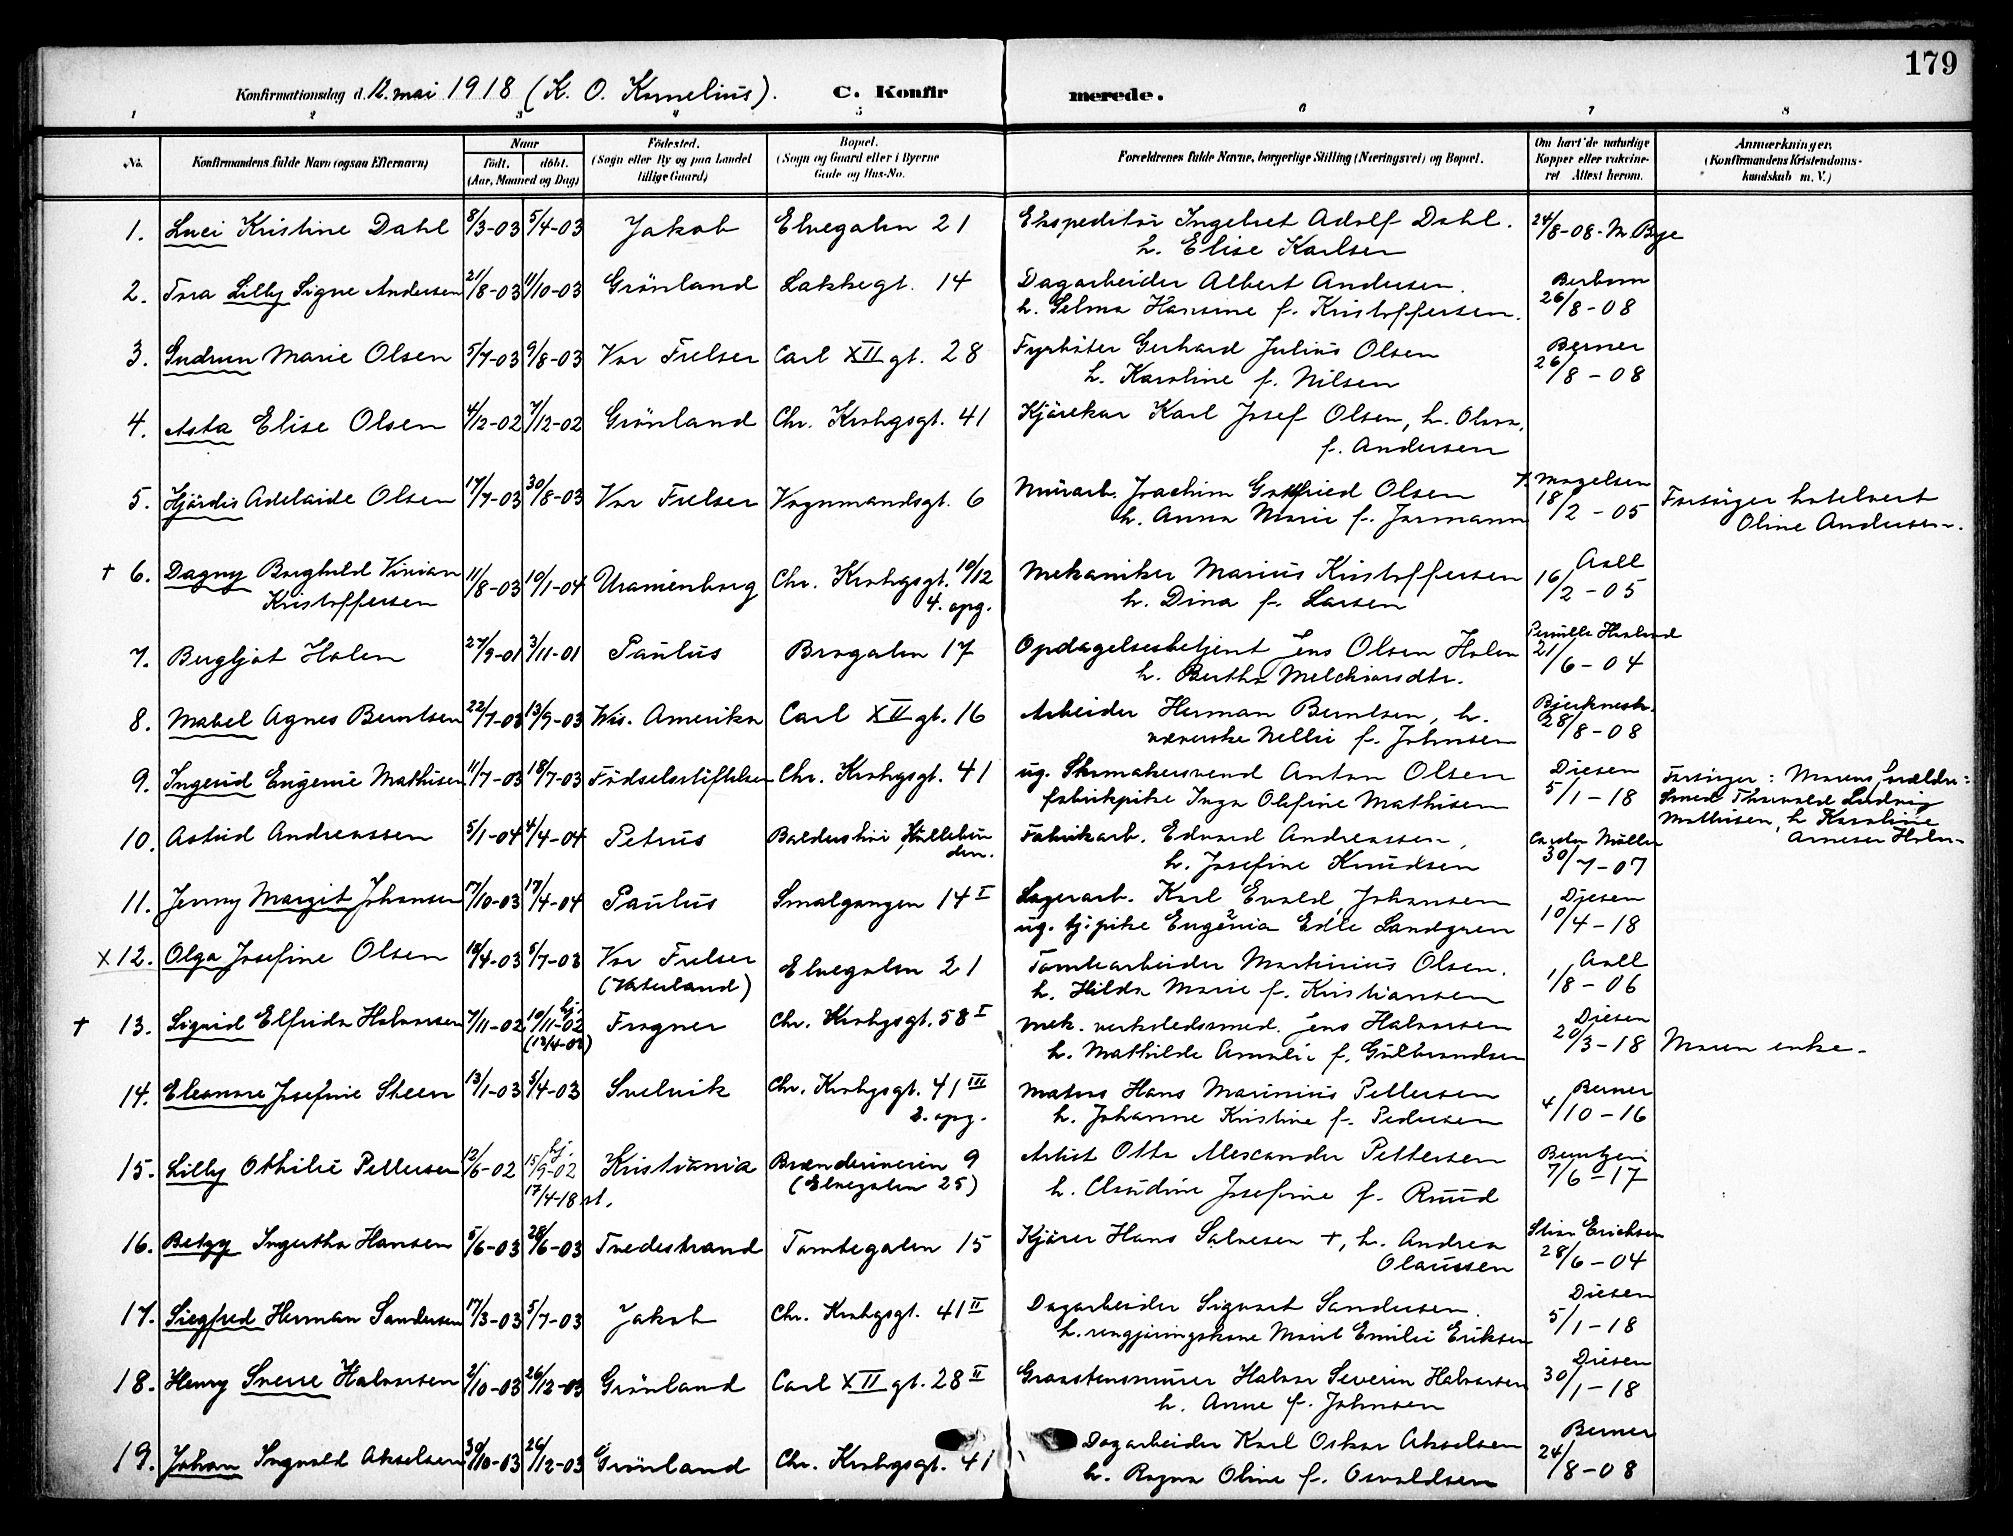 179
Konfirmationsdag d. 12. mai 1918 (K. O. Kornelius). C. Konfirmerede.
1 2 3 4 5 6 7 8
No. Konfirmandens fulde Navn (ogsaa Efternavn) Naar født. døbt. (Aar, Maaned og Dag) Fødested. (Sogn eller By og paa Landet tillige Gaard) Bopæl. (Sogn og Gaard eller i Byerne Gade og Hus-No. Forældrenes fulde Navne, borgerlige Stilling (Næringsvei) og Bopæl. Om havt de naturlige Kopper eller vakcineret Attest herom. Anmærkninger. (Konfirmandens Kristendomskundskab m. V.)
1. Luci Kristine Dahl 8/3-03 5/4-03 Jakob Elvegaten 21 Ekspeditør Ingebret Adolf Dahl. 24/8-08. M. Bye
h. Elise Karlsen
2. Tora Lilly Signe Andersen 21/8-03 11/10-03 Grønland Lakkegt. 14 Dagarbeider Albert Andersen.
h. Selma Hansine f. Kristoffersen. 26/8-08
3. Gudrun Marie Olsen 5/7-03 9/8-03 Vor Frelser Carl XII gt. 28 Fyrbøter Gerhard Julius Olsen Berner
h. Karoline f. Nilsen 26/8-08
4. Asta Elise Olsen 4/12-02 7/12-02 Grønland Chr. Krohgsgt. 41 Kjørekar Karl Josef Olsen, h. Olava,
f. Andersen
5. Hjørdis Adelaide Olsen 17/7-03 30/8-03 Vor Frelser Vognmandsgt. 6 Murarb. Joachim Gottfried Olsen Magelsen
h. Anna Marie f. Jarmann 18/2-05 Forsørger hotelvert
Oline Andersen.
† 6. Dagny Borghild Vivian 11/8-03 10/1-04 Uranienborg Chr. Krohgsgt. 10/12 Mekaniker Marius Kristoffersen Aall
Kristoffersen 4. opg. h. Dina f. Larsen 16/2-05
7. Bergljot Holen 27/9-01 3/11-01 Paulus Brogaten 17 Opdagelsesbetjent Jens Olsen Holen
h. Bertha Melchiorsdtr. 21/6-04
8. Mabel Agnes Berntsen 22/7-03 13/9-03 Wis. Amerika Carl XII gt. 16 Arbeider Herman Berntsen, h.
væverske Nelli f. Johnsen 28/8-08
9. Ingerid Eugenie Mathisen 11/7-03 18/7-03 Fødselsstiftelsen Chr. Krohgsgt. 41 ug. Skomakersvend Anton Olsen Diesen Forsørger: Morens forældre:
fabrikpike Inga Olefine Mathisen 5/1-18 Smed Thorvald Ludvig
Mathisen, h. Karoline
10. Astrid Andreassen 5/1-04 4/4-04 Petrus Fabrikarb. Edvard Andreassen,
h. Josefine Knudsen 30/7-07
11. Jenny Margit Johansen 17/10-03 17/4-04 Paulus Smalgangen 14 I Lagerarb. Karl Evald Johansen Diesen
ug. tj.pike Eugenia Edle Landgren 10/4-18
x 12. Olga Josefine Olsen 18/4-03 5/7-03 Vor Frelser Elvegaten 21 Tomtearbeider Martinius Olsen. Aall
(Vaterland) h. Hilda Marie f. Kristiansen 1/8-06
† 13. Sigrid Elfrida Halvorsen 7/11-02 hj. 10/11-02 Frogner Chr. Krohgsgt. 58 I mek. verkstedsmed. Jens Halvorsen Diesen
(12/4-03) h. Mathilde Amalie f. Gulbrandsen 20/3-18 Moren enke.
14. Eleanore Josefine Steen 13/1-03 5/4-03 Svelvik Chr. Krohgsgt. 41 III Matros Hans Marinius Pettersen Berner
2. opg. h. Johanne Kristine f. Pedersen 4/10-16
15. Lilly Othilie Pettersen 12/6-02 hj. 15/9-02 Kristiania Brænderiveien 9 Artist Otto Alexander Pettersen Berntzen
17/4-18 st. (Elvegaten 25) h. Claudine Josefine f. Ruud 7/6-17
16. Betzy Ingertha Hansen 5/6-03 28/6-03 Tvedestrand Tomtegaten 15 Kjører Hans Salvesen †, h. Andrea Stian Erichsen
Olaussen 28/6-04
17. Siegfred Herman Sandersen 17/3-03 5/7-03 Jakob Chr. Krohgsgt. 41 II Dagarbeider Sigvart Sandersen. Diesen
h. rengjøringskone Marit Emilie Eriksen 5/1-18
18. Henry Sverre Halvorsen 2/10-03 26/12-03 Grønland Carl XII gt. 28 II Graastensmurer Halvor Severin Halvorsen Diesen
h. Anne f. Johnsen 30/1-18
19. Johan Ingvald Akselsen 30/10-03 26/12-03 Grønland Chr. Krohgsgt. 41 Dagarbeider Karl Oskar Akselsen Berner
h. Ragna Oline f. Osvaldsen 24/8-08